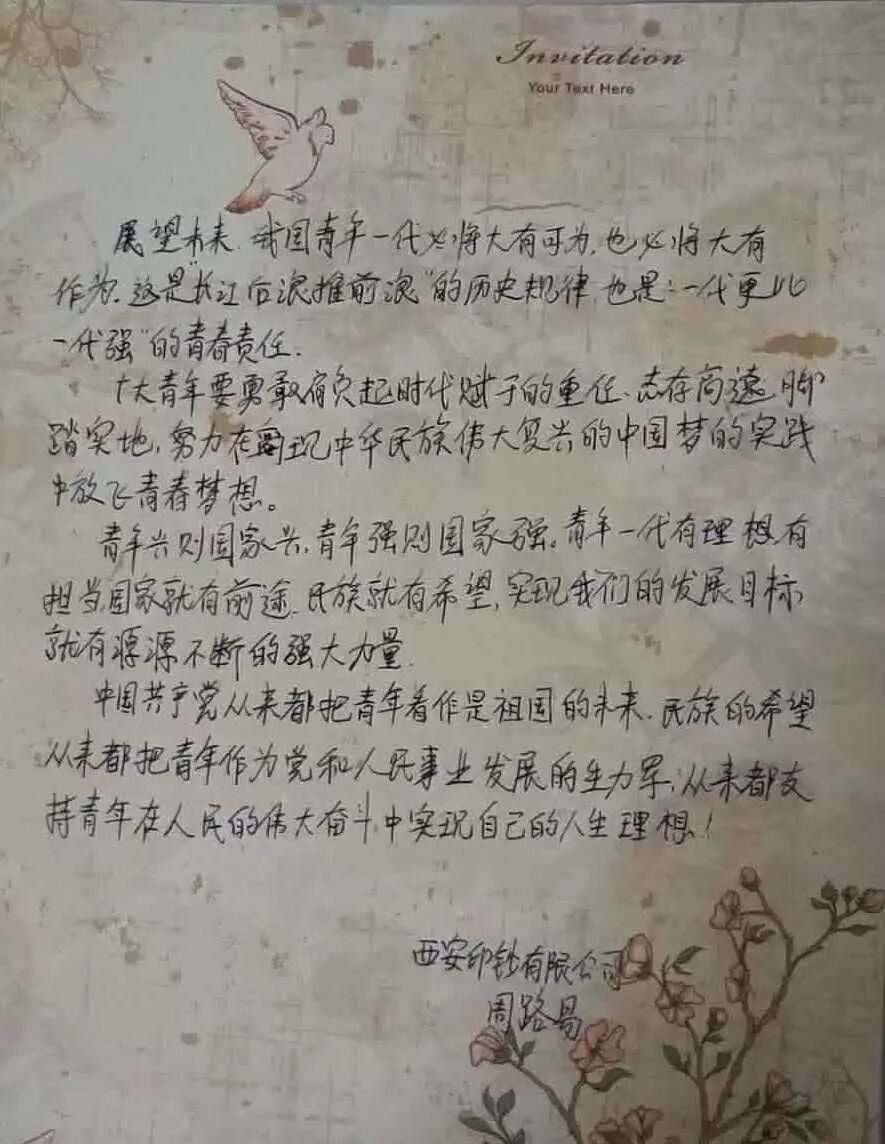 Invitation
Your Text Here
展望未来,我国青年一代必将大有可为,也必将大有
作为。这是"长江后浪推前浪"的历史规律,也是"一代更比
一代强"的青春责任.
广大青年要勇敢肩负起时代赋予的重任、志存高远,脚
踏实地,努力在实现中华民族伟大复兴的中国梦的实践
中放飞青春梦想。
青年兴则国家兴,青年强则国家强。青年一代有理想,有
担当,国家就有前途、民族就有希望,实现我们的发展目标
就有源源不断的强大力量.
中国共产党从来都把青年看作是祖国的未来、民族的希望
从来都把青年作为党和人民事业发展的生力军,从来都支
持青年在人民的伟大奋斗中实现自己的人生理想!
西安印钞有限公司
周路易